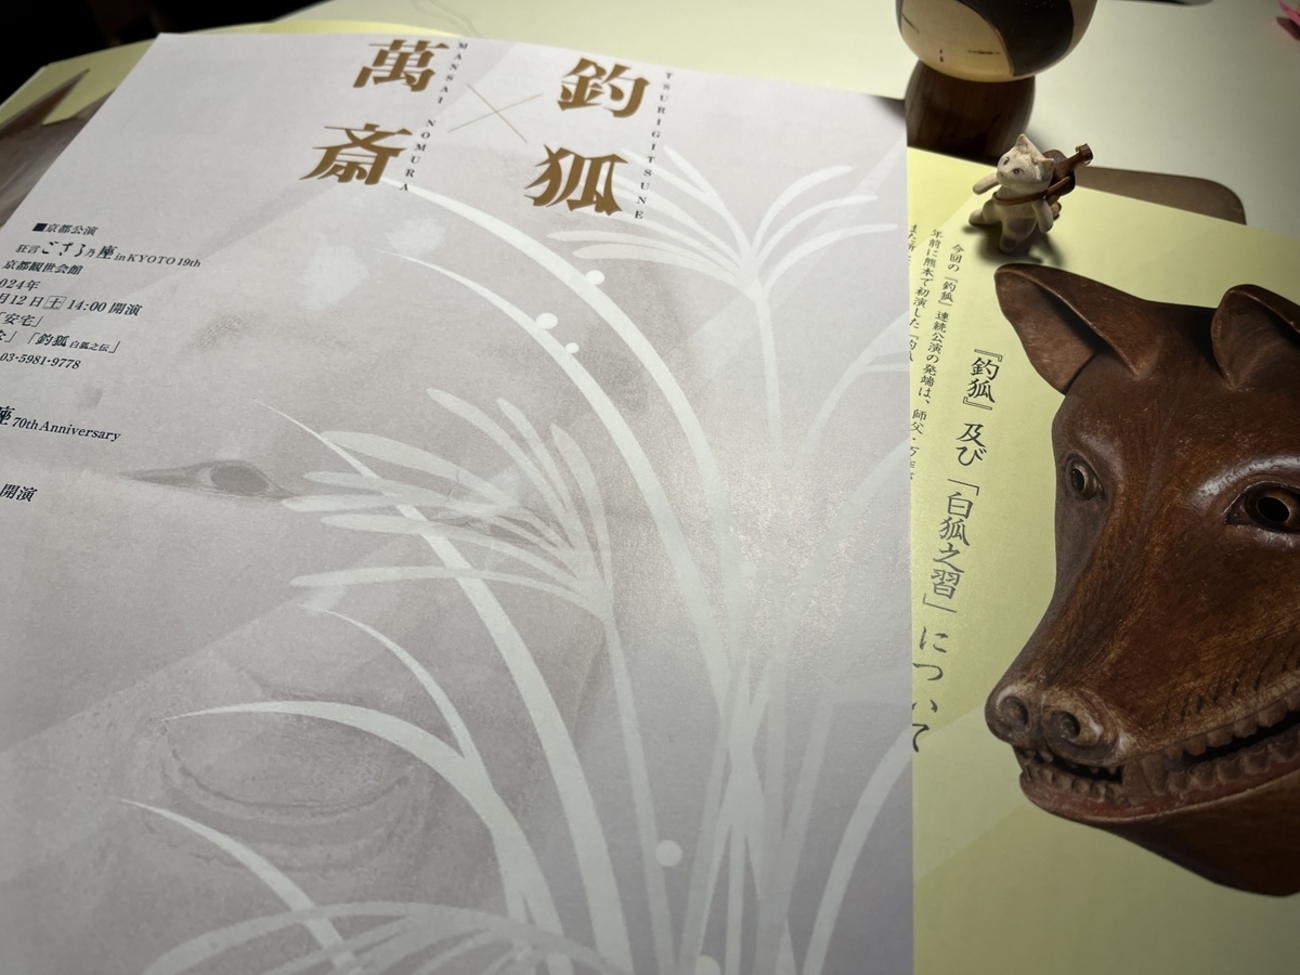 釣狐
TSURIGITSUNE
×
萬斎
MANSAI NOMURA
■京都公演
狂言ござる乃座 in KYOTO 19th
京都観世会館
024年
月12日土 14:00 開演
「安宅」
」「釣狐 白狐之伝」
03-5981-9778
座 70th Anniversary
開演
『釣狐』及び「白狐之習」について
今回の『釣狐』連続公演の発端は、師父・万
年前に熊本で初演した『釣狐
また新